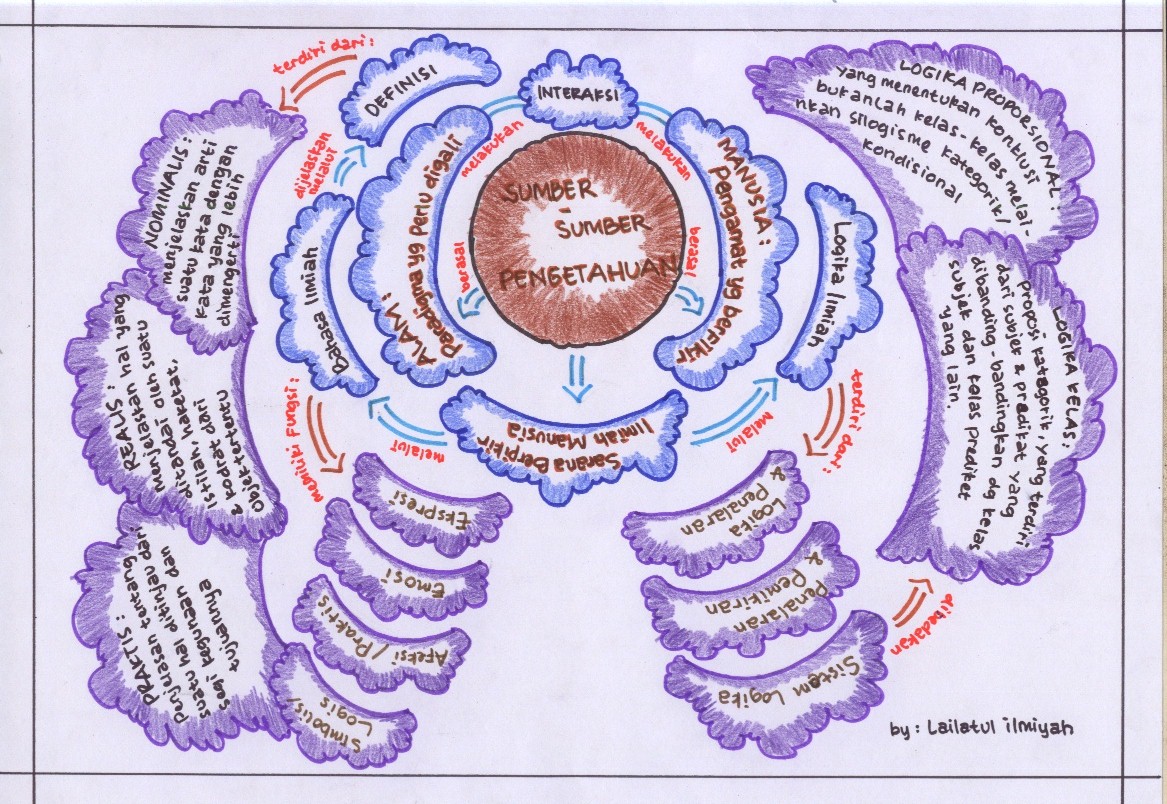 SUMBER
-
SUMBER
PENGETAHUAN
INTERAKSI
melakukan
melakukan
berasal
berasal
ALAM :
Paradigma yg Perlu digali
MANUSIA :
Pengamat yg berfikir
Sarana Berpikir
Ilmiah Manusia
melalui
melalui
Bahasa Ilmiah
dijelaskan
melalui
DEFINISI
terdiri dari :
NOMINALIS :
menjelaskan arti
suatu kata dengan
kata yang lebih
dimengerti
REALIS :
Menjelaskan hal yang
ditandai oleh suatu
istilah, hakekat,
& kodrat dari
objek tertentu
PRAKTIS :
Penjelasan tentang
suatu hal ditinjau dari
segi kegunaan dan
tujuannya
memiliki Fungsi :
Ekspresi
Emosi
Afeksi / Praktis
Simbolis /
Logis
Logika Ilmiah
terdiri dari :
Logika
& Penalaran
Penalaran
& Pemikiran
Sistem Logika
dibedakan
LOGIKA PROPORSIONAL :
yang menentukan konklusi
bukanlah kelas-kelas melai-
nkan silogisme kategorik/
kondisional
LOGIKA KELAS :
Proposi kategorik, yang terdiri
dari subjek & predikat yang
dibanding-bandingkan dg kelas
subjek dan kelas predikat
yang lain.
by : Lailatul ilmiyah